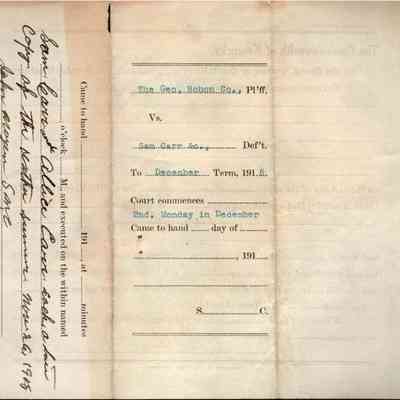 The Geo. Hobon Co., Pl'ff,
Vs.
Sam Carr &c., Def't.
To December Term, 1915.
Court commences
2nd. Monday in December
Came to hand day of
, 191
S. C.
Came to hand 191 , at minutes
o'clock M., and executed on the within named
Sam Carr & Allice Carr each a true
Copy of the within summons Nov 26, 1915
John